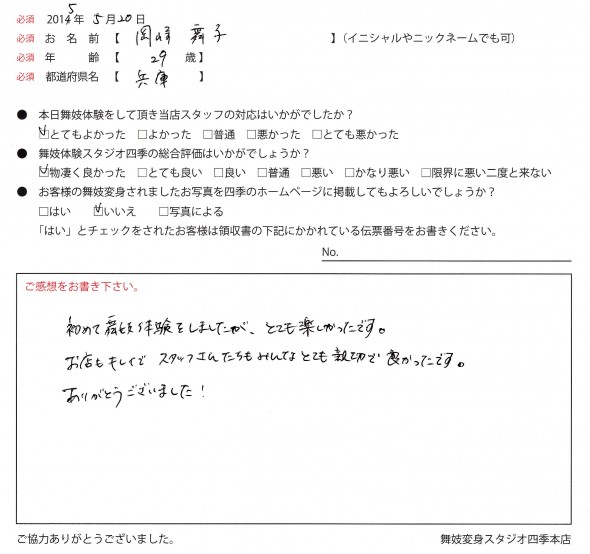 必須 2015年 5月20日
必須 お 名 前 【 岡崎 舞子 】(イニシャルやニックネームでも可)
必須 年 齢 【 29 歳】
必須 都道府県名 【 兵庫 】
● 本日舞妓体験をして頂き当店スタッフの対応はいかがでしたか?
☑とてもよかった □よかった □普通 □悪かった □とても悪かった
● 舞妓体験スタジオ四季の総合評価はいかがでしょうか?
☑物凄く良かった □とても良い □良い □普通 □悪い □かなり悪い □限界に悪い二度と来ない
● お客様の舞妓変身されましたお写真を四季のホームページに掲載してもよろしいでしょうか?
□はい ☑いいえ □写真による
「はい」とチェックをされたお客様は領収書の下記にかかれている伝票番号をお書きください。
No.
ご感想をお書き下さい。
初めて舞妓体験をしましたが、とても楽しかったです。
お店もキレイで スタッフさんたちもみんなとても親切で 良かったです。
ありがとうございました!
ご協力ありがとうございました。 舞妓変身スタジオ四季本店